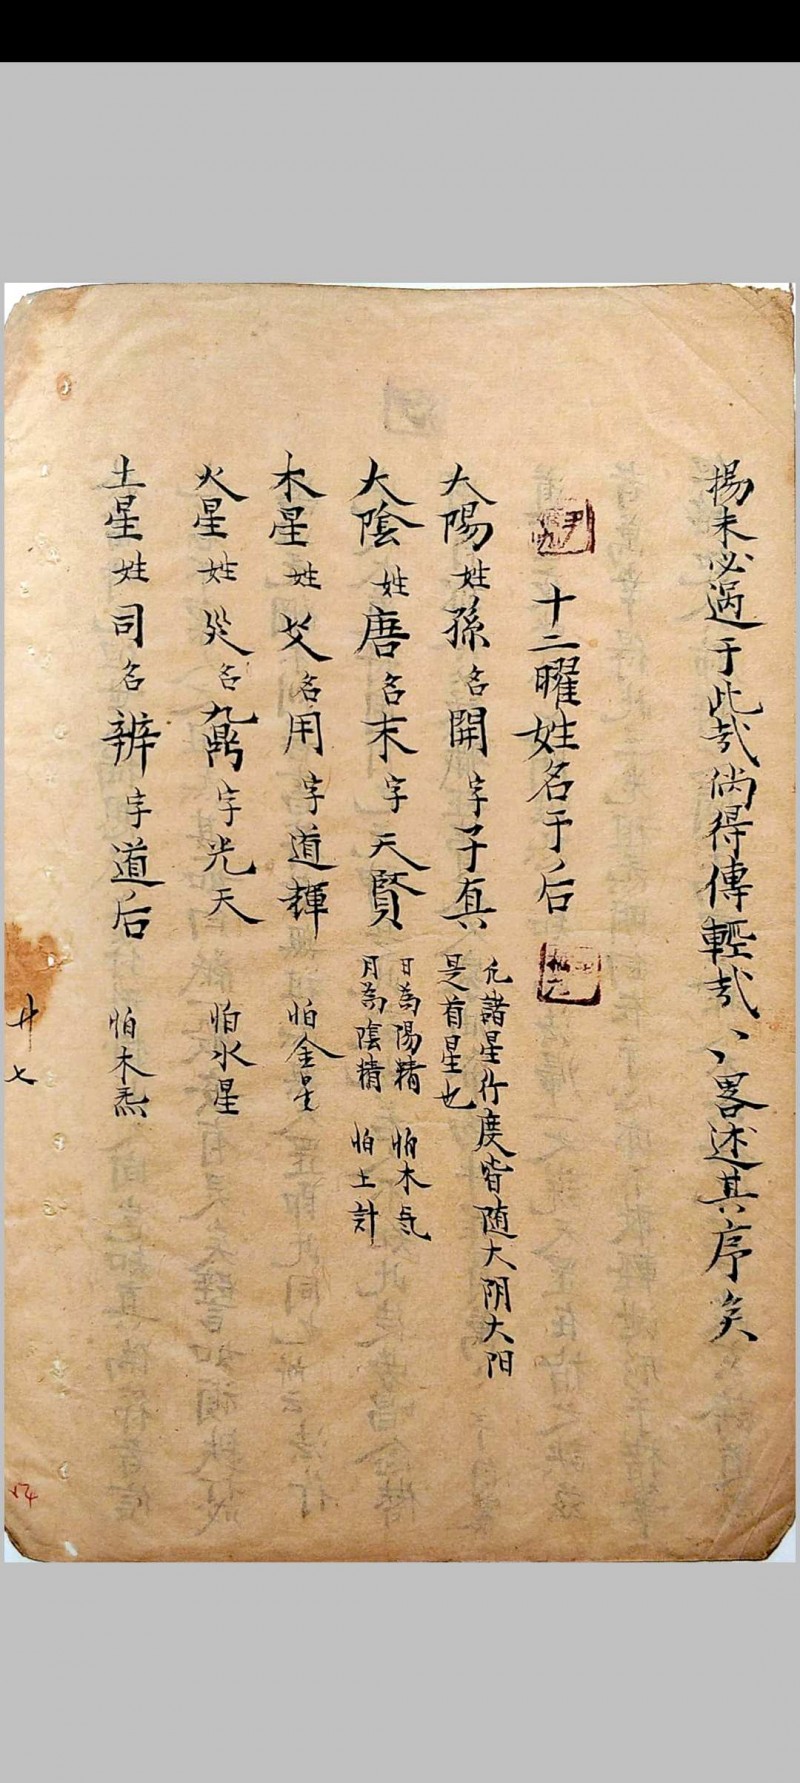 揚未必過于此哉倘得傳輕哉〻畧述其序矣
十二曜姓名于后
大陽姓孫名開字子真
凡諸星行度皆随大阴大阳
是首星也
大陰姓唐名末字天賢
日為陽精 怕木炁
月為陰精 怕土計
木星姓名用字道輝 怕金星
火星姓名字光天 怕水星
土星姓司名辨字道后 怕木炁
廿七